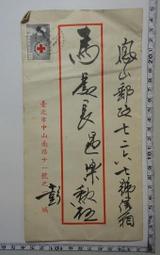 鳳山郵政七二六七號信箱
馬處長遇樂勳啟
臺北市中山南路十一號之
彭
緘